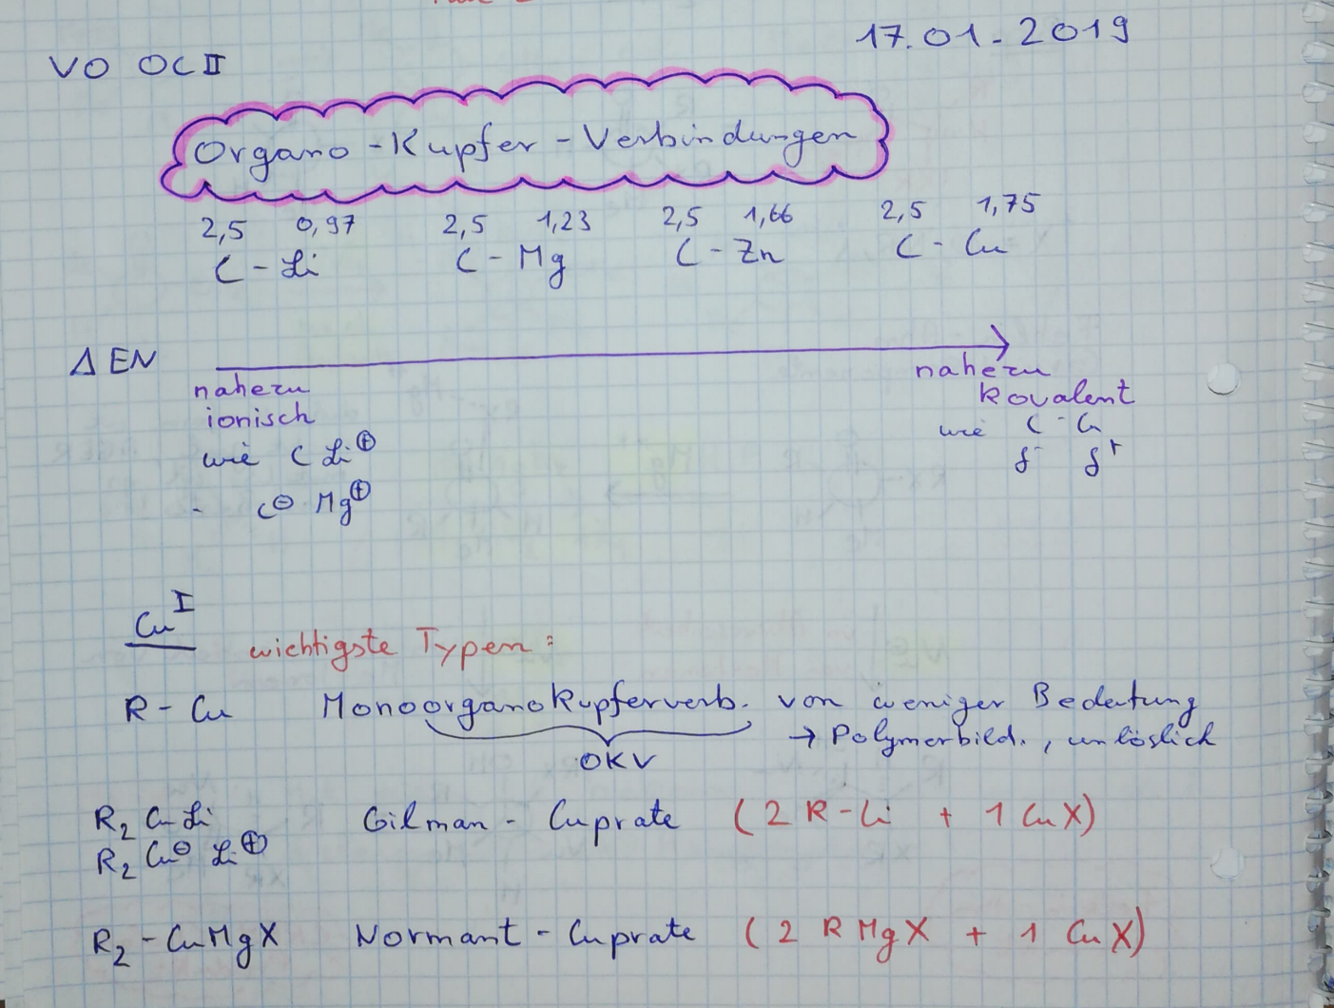 17.01.2019
VO OC II
Organo-Kupfer-Verbindungen
2,5 0,97 2,5 1,23 2,5 1,66 2,5 1,75
C - Li C - Mg C - Zn C - Cu
Δ EN
nahezu nahezu
ionisch kovalent
wie C Li⊕ wie C - Cu
δ⁻ δ⁺
C⊖ Mg⊕
Cu^I
wichtigste Typen:
R - Cu Monoorganokupferverb. von weniger Bedeutung
→ Polymerbild., unlöslich
OKV
R₂CuLi Gilman - Cuprate (2 R-Li + 1 CuX)
R₂Cu⊖ Li⊕
R₂-CuMgX Normant - Cuprate (2 RMgX + 1 CuX)